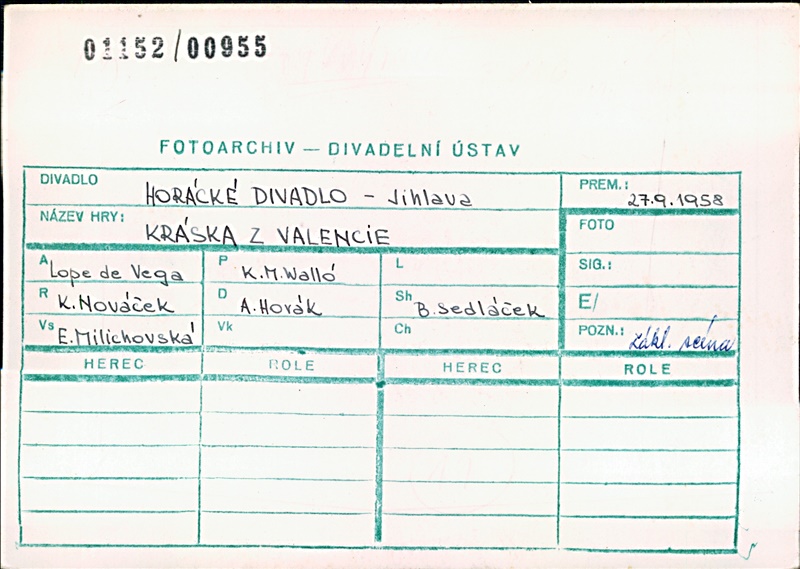 01152/00955
FOTOARCHIV — DIVADELNÍ ÚSTAV
DIVADLO HORÁCKÉ DIVADLO - Jihlava
PREM.: 27.9.1958
NÁZEV HRY: KRÁSKA Z VALENCIE
FOTO
A Lope de Vega P K.M.Walló L
SIG.:
R K.Nováček D A.Horák Sh B.Sedláček
E/
Vs E.Milichovská Vk Ch
POZN.: zákl. scéna
HEREC ROLE HEREC ROLE